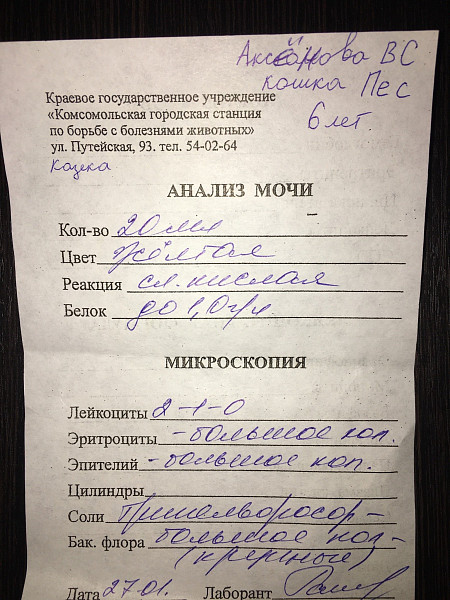 Аксёнова ВС
кошка Пес
6 лет.
Краевое государственное учреждение
«Комсомольская городская станция
по борьбе с болезнями животных»
ул. Путейская, 93. тел. 54-02-64
АНАЛИЗ МОЧИ
Кол-во 20 мл
Цвет жёлтая
Реакция сл. кислая
Белок до 1,0 г/л
МИКРОСКОПИЯ
Лейкоциты 2-1-0
Эритроциты - большое кол.
Эпителий - большое кол.
Цилиндры
Соли
Бак. флора большое кол-
Дата 27.01. Лаборант